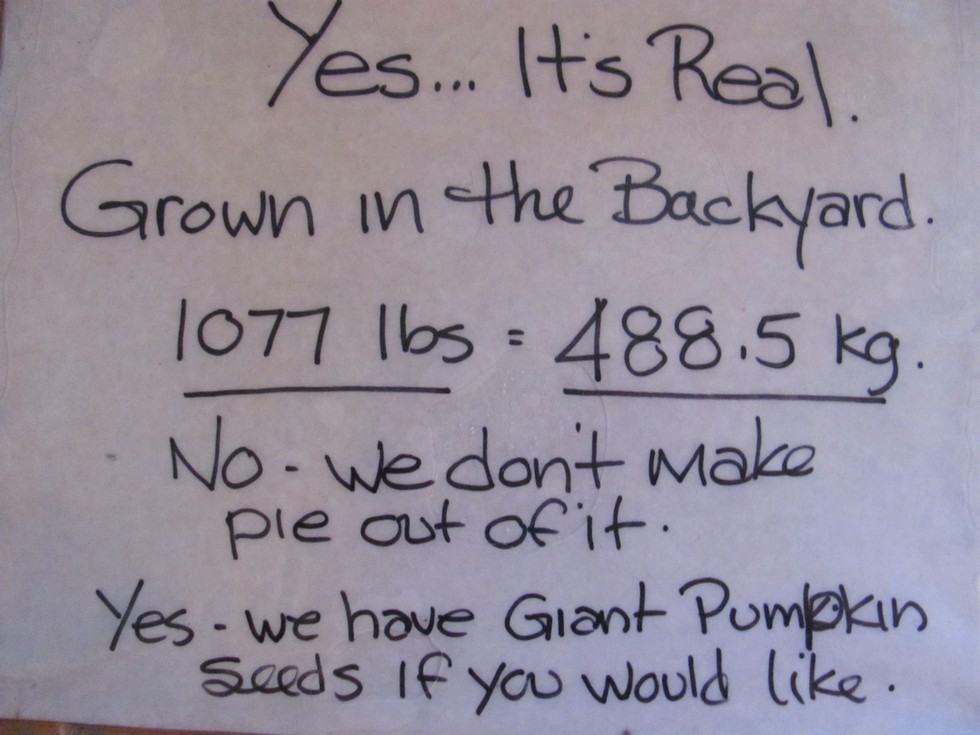 Yes... It's Real.
Grown in the Backyard.
1077 lbs = 488.5 kg.
No - we don't make
pie out of it.
Yes - we have Giant Pumpkin
seeds if you would like.